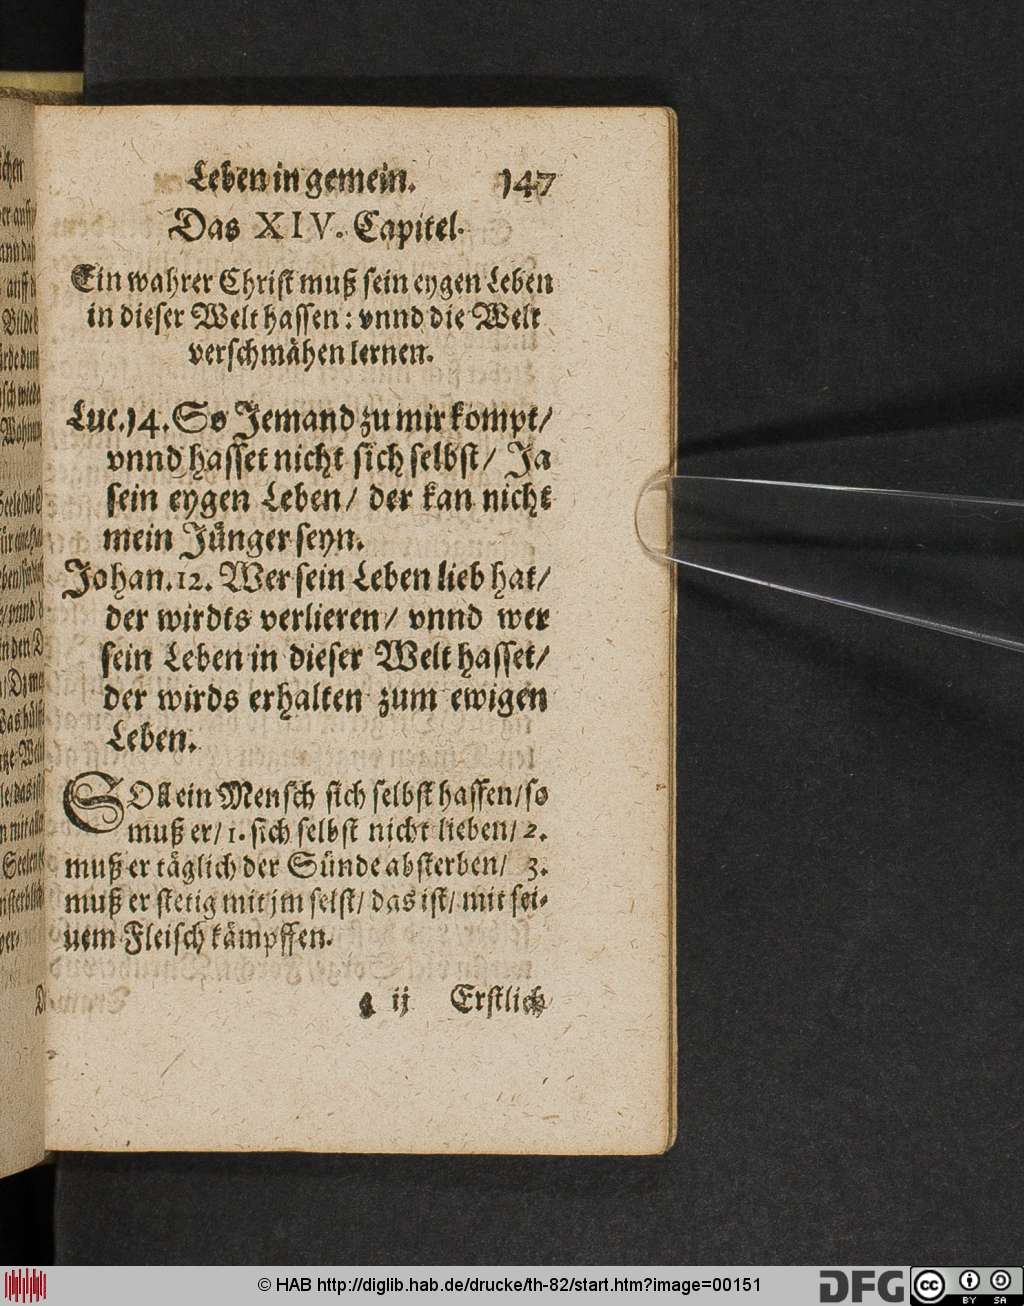 Leben in gemein. 147
Das XIV. Capitel.
Ein wahrer Christ muß sein eygen Leben
in dieser Welt hassen: vnnd die Welt
verschmähen lernen.
Luc. 14. So Jemand zu mir kompt/
vnnd hasset nicht sich selbst/ Ja
sein eygen Leben/ der kan nicht
mein Jünger seyn.
Johan. 12. Wer sein Leben lieb hat/
der wirdts verlieren/ vnnd wer
sein Leben in dieser Welt hasset/
der wirds erhalten zum ewigen
Leben.
SOll ein Mensch sich selbst hassen/ so
muß er/ 1. sich selbst nicht lieben/ 2.
muß er täglich der Sünde absterben/ 3.
muß er stetig mit jm selst/ das ist/ mit sei-
uem Fleisch kämpffen.
ij Erstlich
© HAB http://diglib.hab.de/drucke/th-82/start.htm?image=00151
DFG
cc BY SA